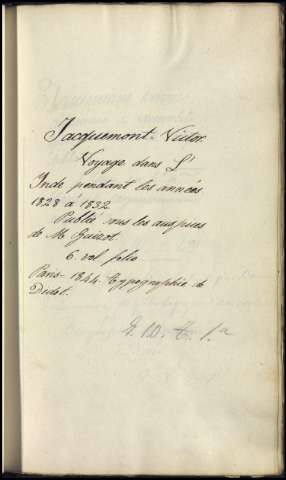 Jacquemont- Victor.
Voyage dans L'
Inde pendant les années
1828 à 1832.
Publié sous les auspices
de M. Guizot.
6. vol folio
Paris- 1844. typographie de
Didot.
G. D. T. 1.a